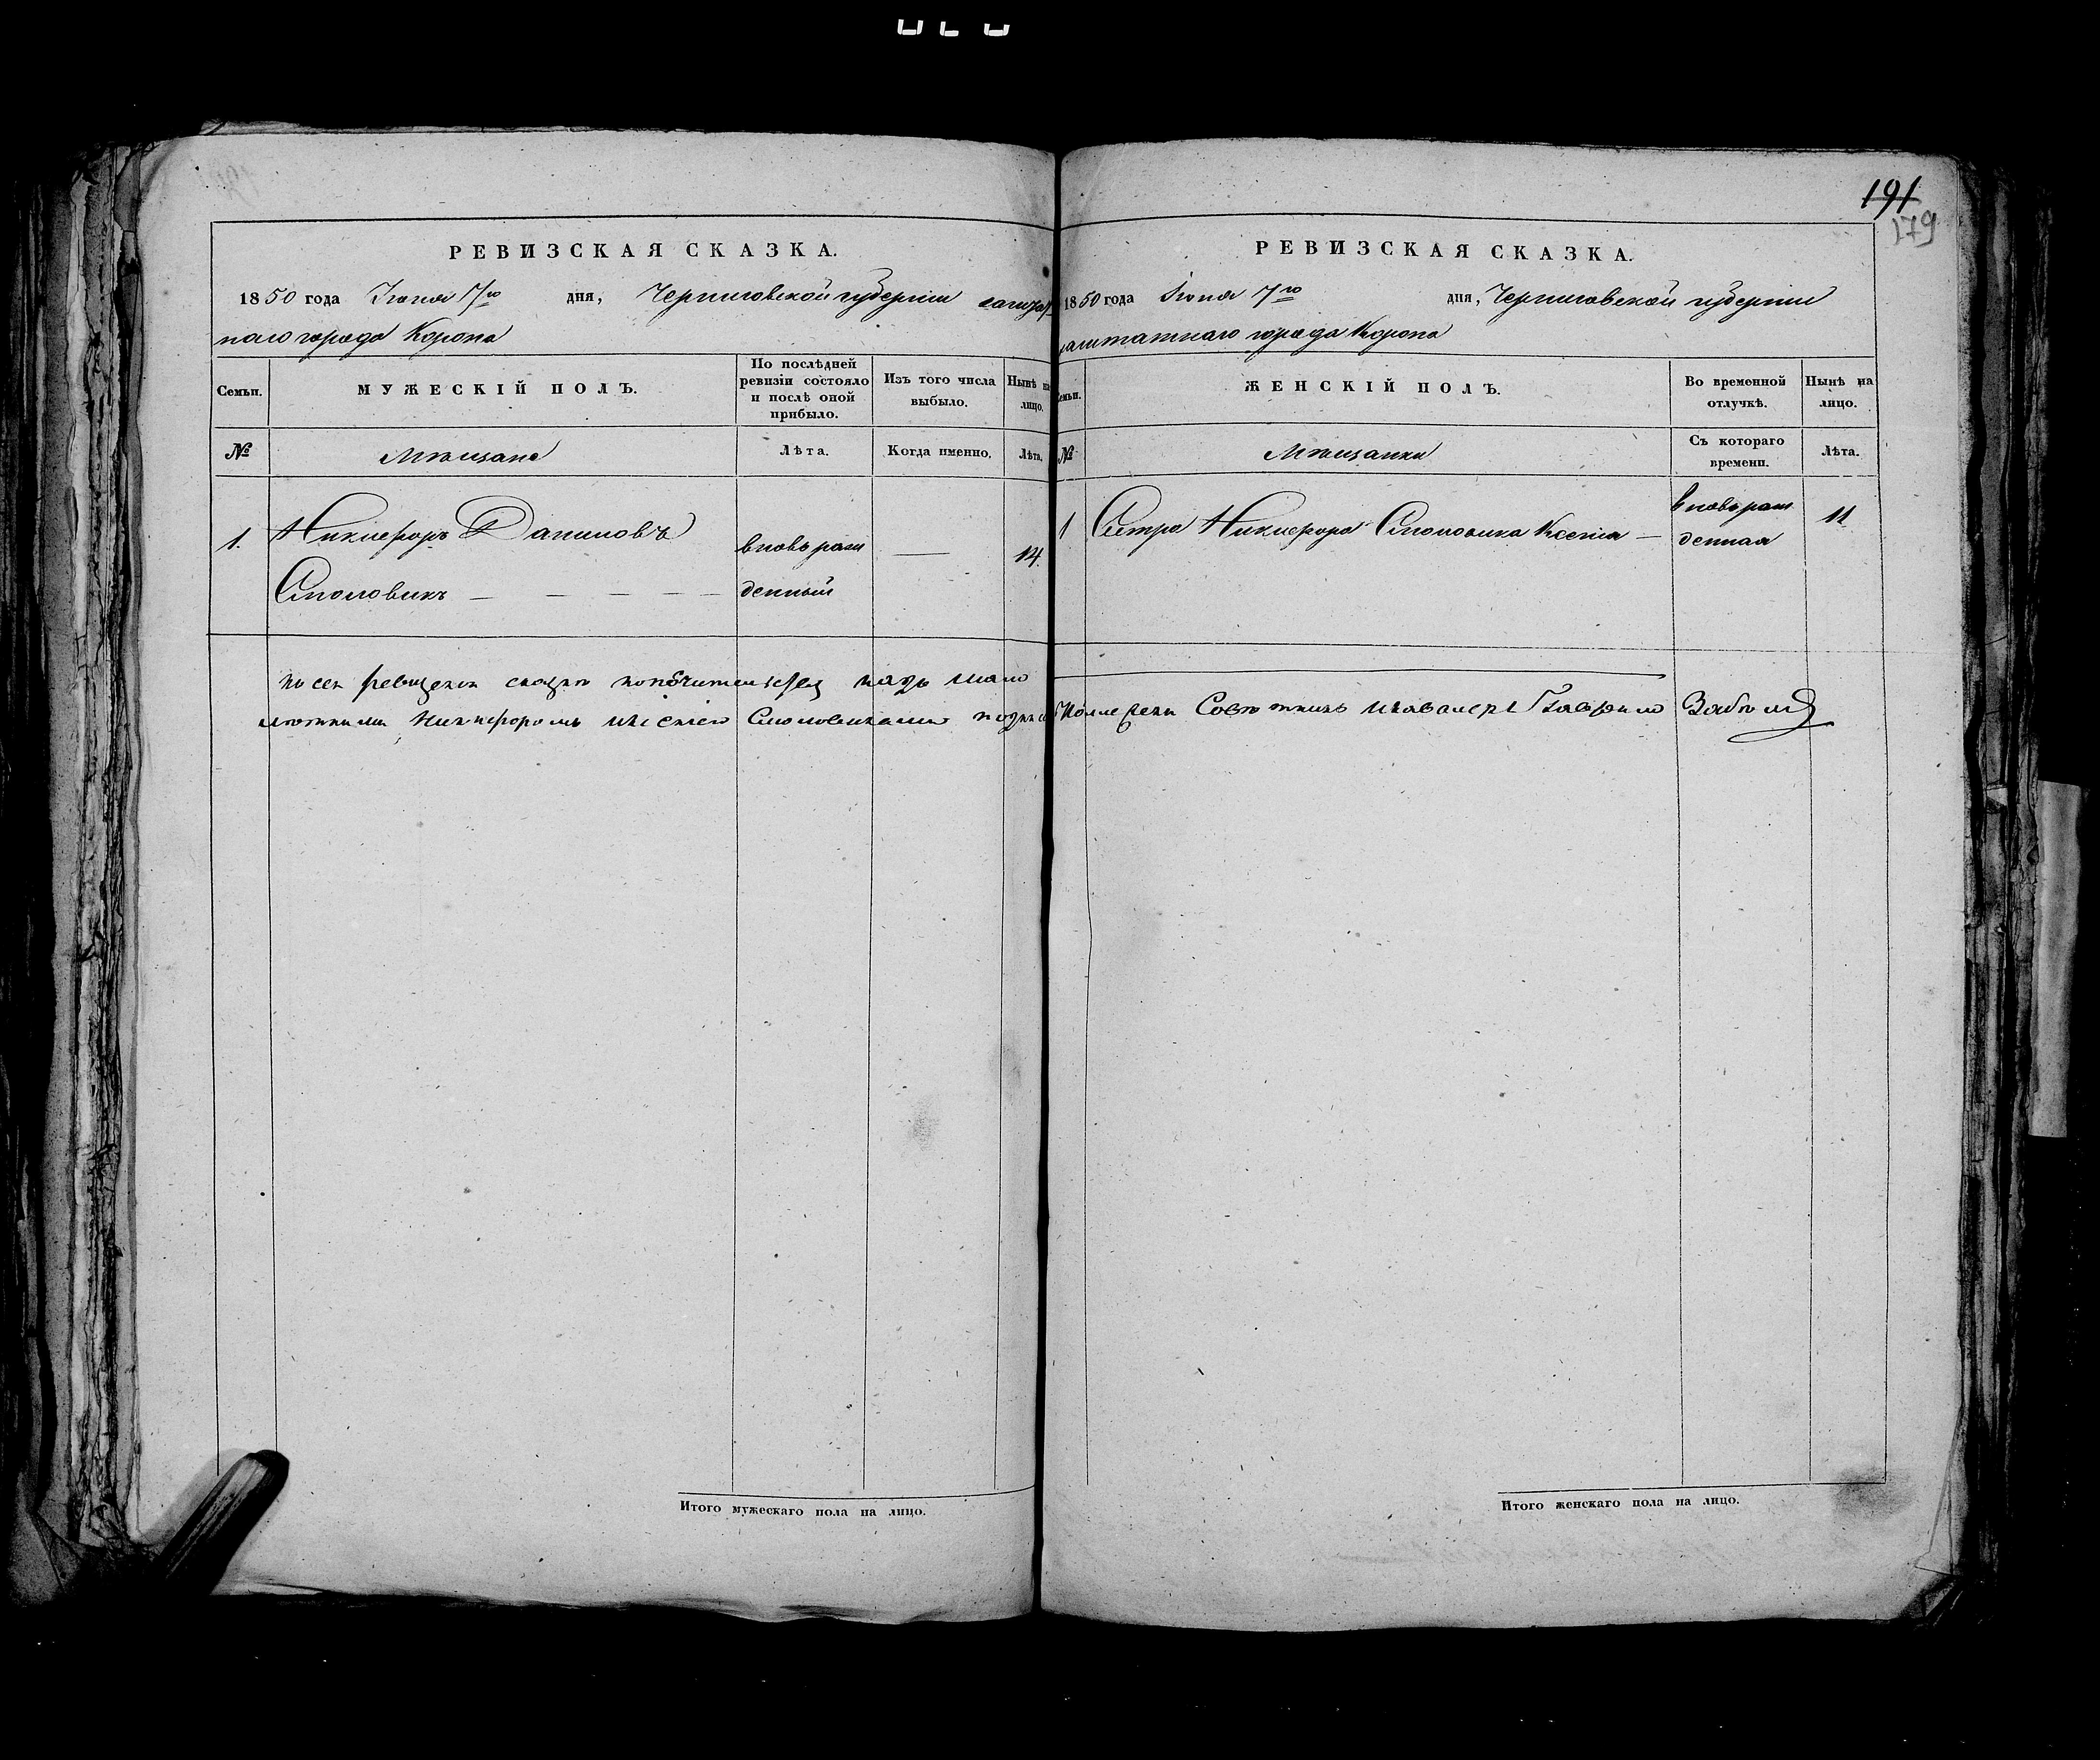 191
179
РЕВИЗСКАЯ СКАЗКА.
1850 года Іюня 7го дня, Черниговской губерніи заштат
наго города Коропа
Семьи. МУЖЕСКІЙ ПОЛЪ. По послѣдней ревизіи состояло и послѣ оной прибыло. Изъ того числа выбыло. Нынѣ на лицо.
№ Мѣщане Лѣта. Когда именно. Лѣта.
1. Никифоръ Даниловъ вновь рож — 14.
Столовикъ — — — — — денный
по сей ревизской сказки попечитель надъ мало
лѣтними Никифоромъ Ксеніею
Итого мужескаго пола на лицо.
РЕВИЗСКАЯ СКАЗКА.
1850 года Іюня 7го дня, Черниговской губерніи
заштатнаго города Коропа
Семьи. ЖЕНСКІЙ ПОЛЪ. Во временной отлучкѣ. Нынѣ на лицо.
№ Мѣщанки Съ котораго времени. Лѣта.
1 Сестра Никифора Столовика Ксенія — вновь рож 11
денная
Совѣтникъ икавалеръ Гаврило Забѣла
Итого женскаго пола на лицо.